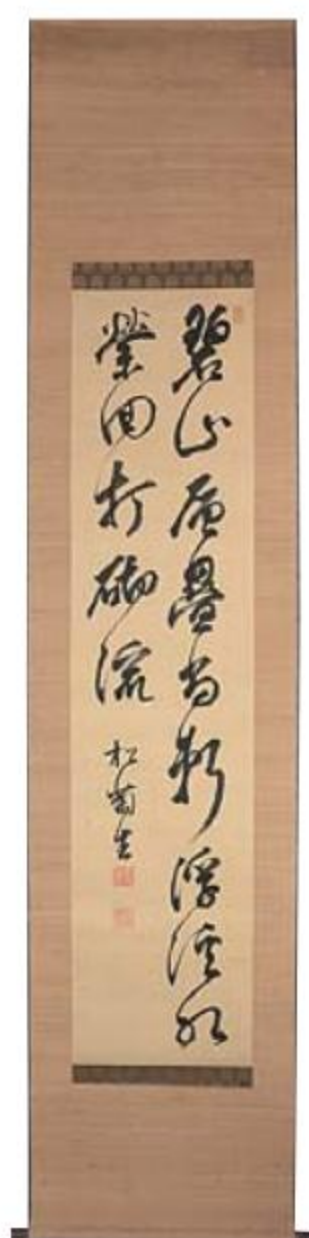 碧山層疊當軒浮溪水
縈回打砌流
松菊生